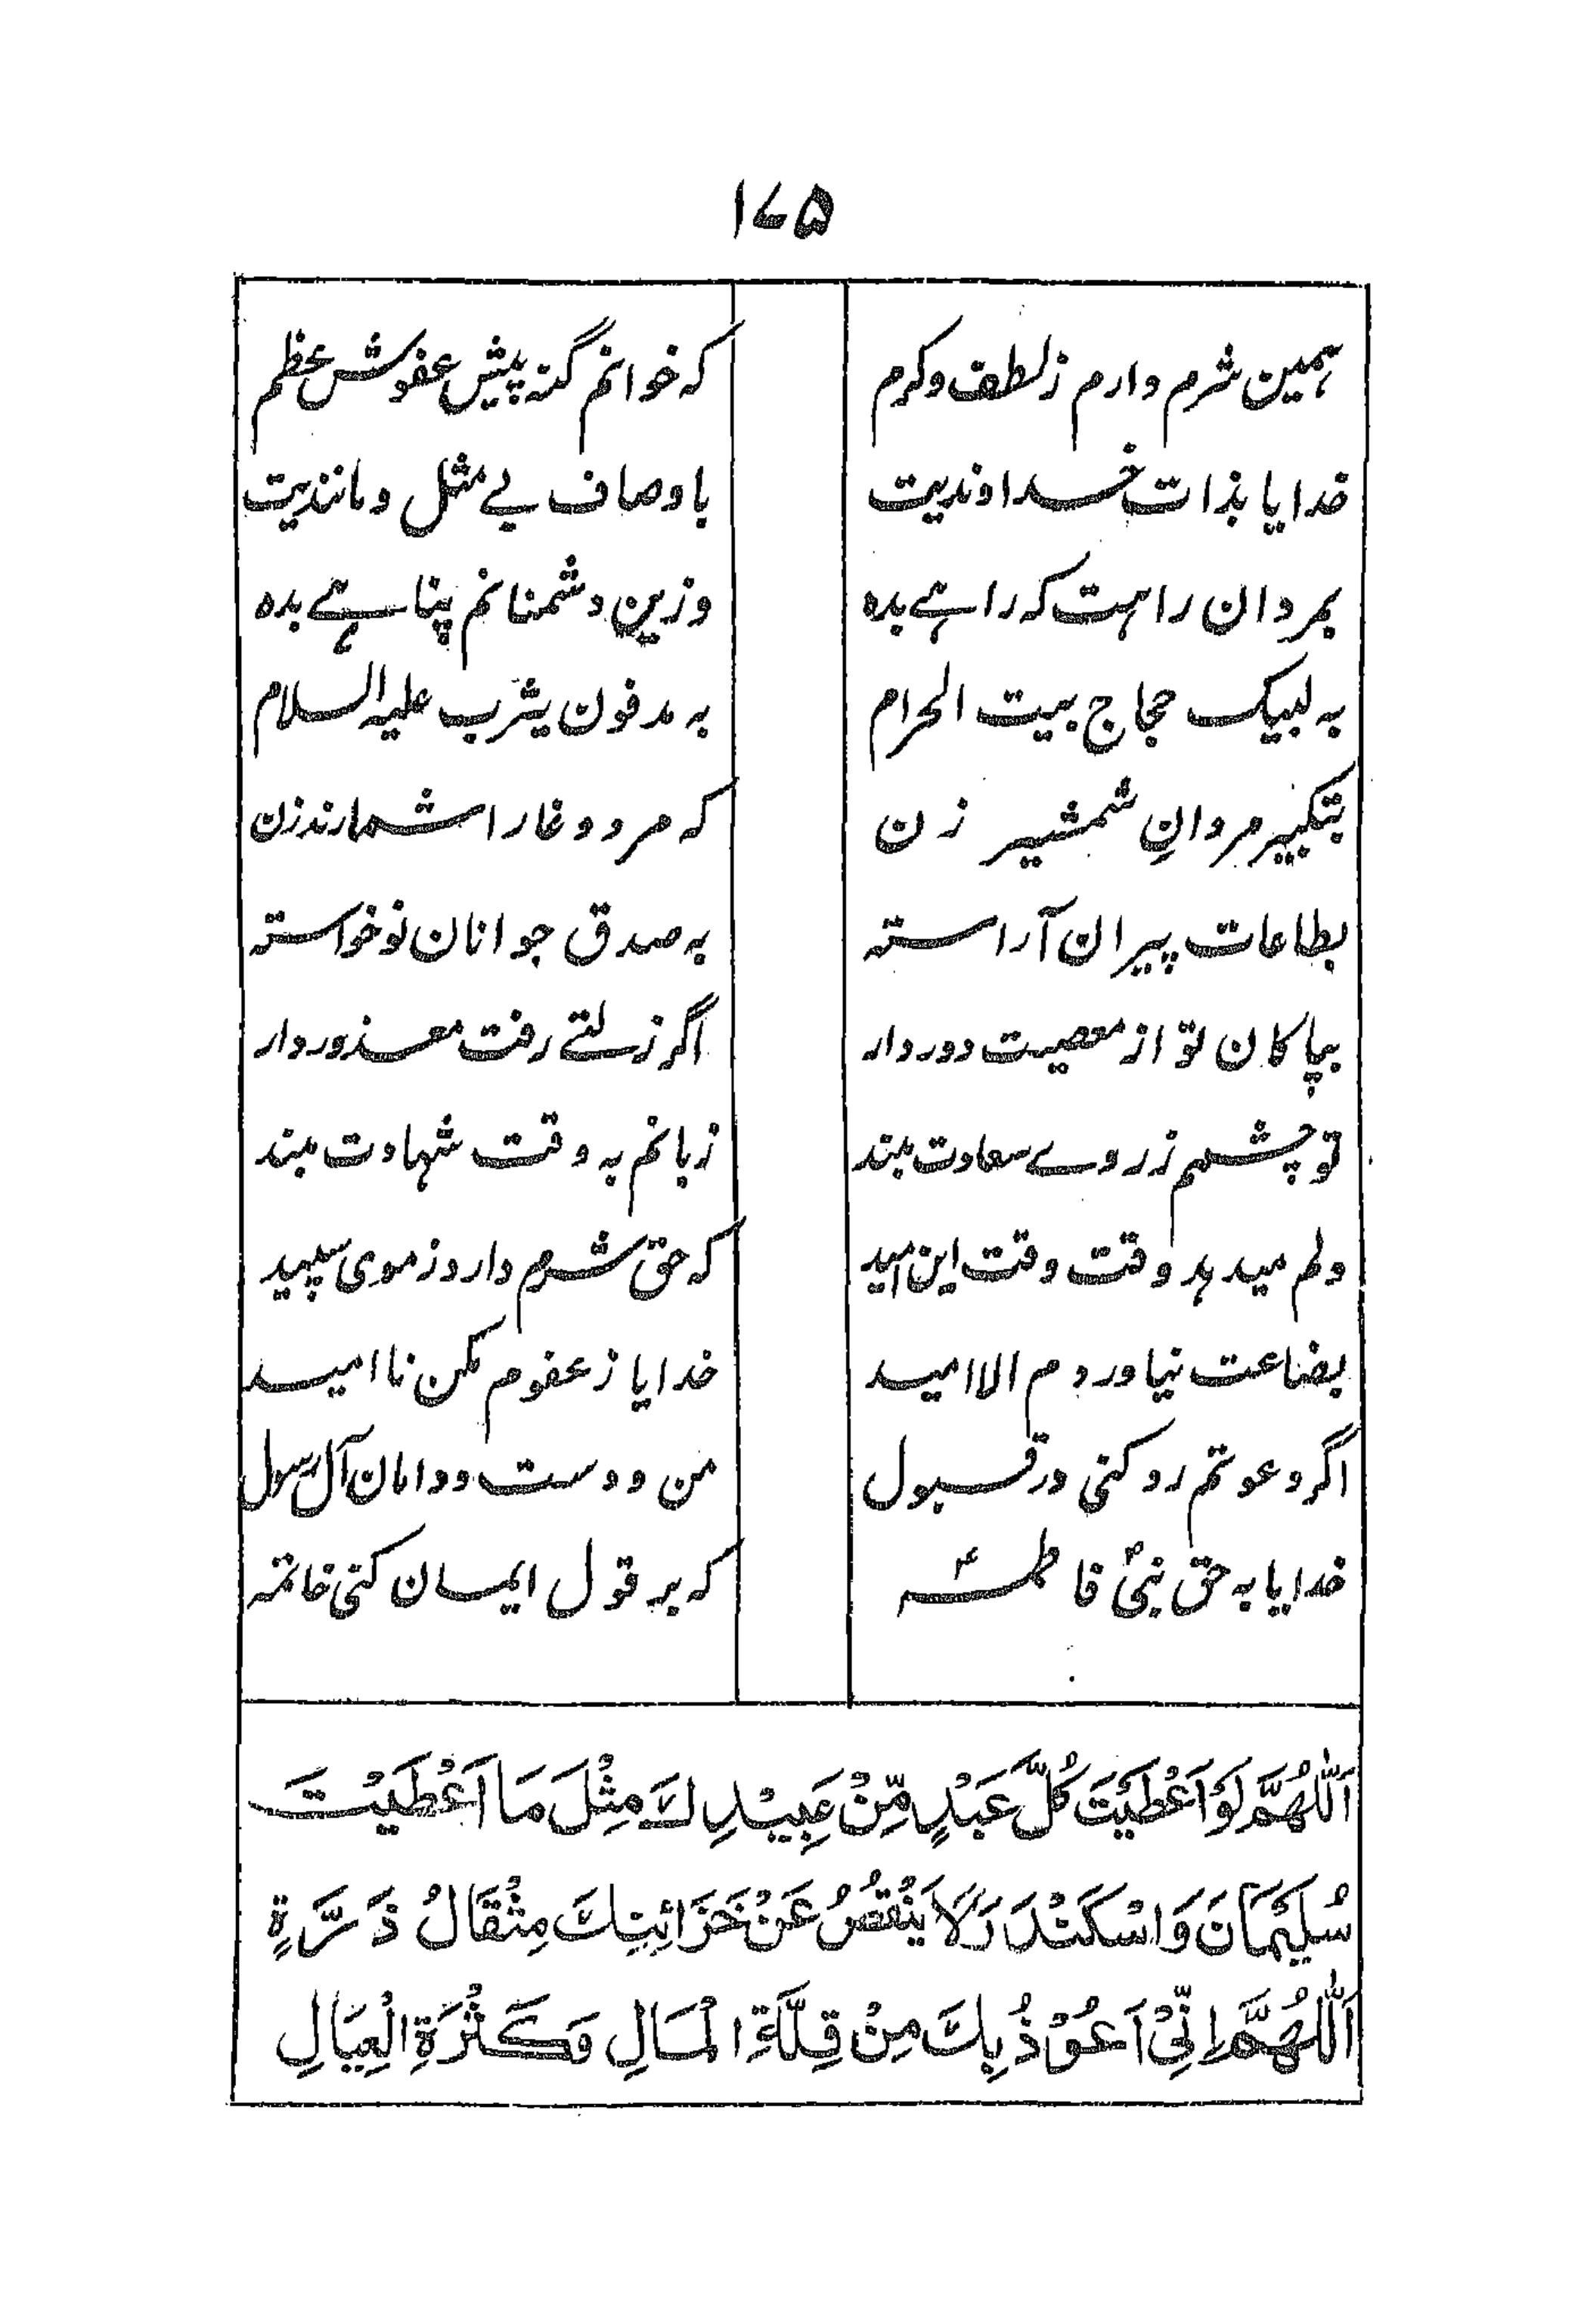 ۱۷۵
ہمین شرم دارم زلطف وکرم کہ خوانم گنہ پیش عفوش عظم
خدایا بذات خداوندیت باوصاف بے مثل ومانندیت
بمردان راہت کہ راہے بدہ وزین دشمنانم پناہے بدہ
بہ لبیک حجاج بیت الحرام بہ مدفون یثرب علیہ السلام
بتکبیر مردانِ شمشیر زن کہ مرد وغارا شمارند زن
بطاعات پیران آراستہ بہ صدق جوانان نوخواستہ
بپاکان تو از معصیت دور دار اگر زلتے رفت معذور دار
تو چشمم زروے سعادت مبند زبانم بہ وقت شہادت مبند
دلم میدہد وقت وقت این امید کہ حق شرم دارد زموی سپید
بضاعت نیاوردم الا امید خدایا زعفوم مکن ناامید
اگر دعوتم رد کنی ور قبول من و دست و دامان آل رسول
خدایا بہ حق نبیؐ فاطمہؑ کہ بر قول ایمان کنی خاتمہ
اَللّٰهُمَّ لَوْ اَعْطَيْتَ كُلَّ عَبْدٍ مِّنْ عَبِيْدِكَ مِثْلَ مَا اَعْطَيْتَ
سُلَيْمَانَ وَاسْكَنْدَرَ لَا يَنْقُصُ عَنْ خَزَائِنِكَ مِثْقَالُ ذَرَّةٍ
اَللّٰهُمَّ اِنِّيْ اَعُوْذُ بِكَ مِنْ قِلَّةِ الْمَالِ وَكَثْرَةِ الْعِيَالِ